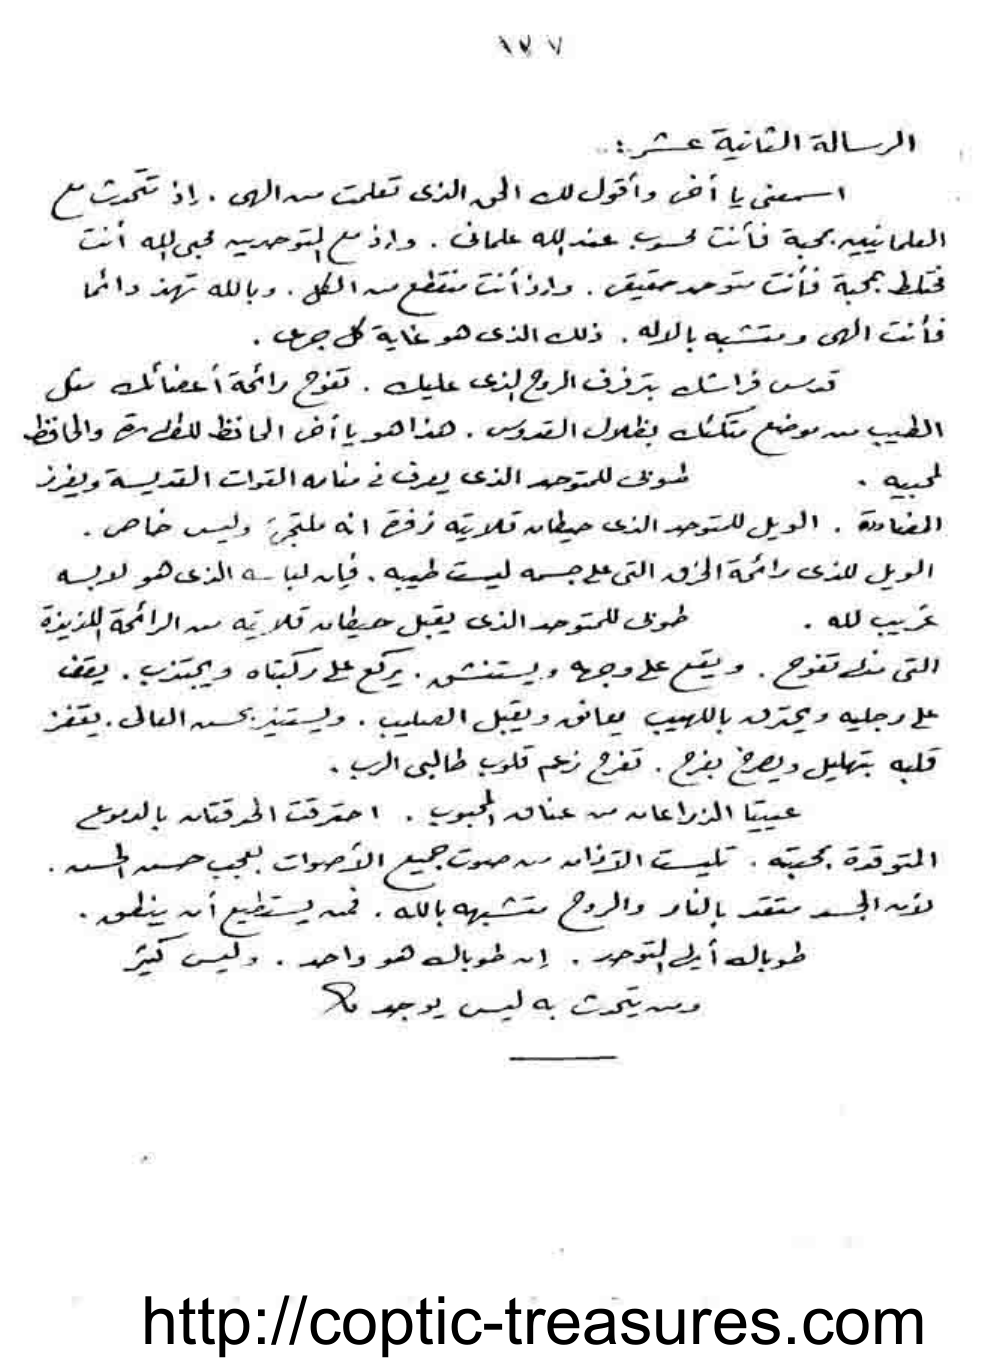 ١٧٧
الرسالة الثانية عشر :
اسمعنى يا أخى وأقول لك الحق الذى تعلمت من الهى . إذ تتحدث مع
العلمانيين بمحبة فأنت محسوب عند الله علمانى . وإذ مع المتوحدين محبى الله أنت
مختلط بمحبة فأنت متوحد حقيقى . وإذ أنت منقطع من الكل . وبالله تهذ دائما
فأنت الهى ومتشبه بالاله . ذلك الذى هو غاية كل
قدس فراشك بترفرف الروح الذى عليك . تفوح رائحة أعضائك مثل
الطيب من موضع متكئك بظلال القدوس . هذا هو يا أخى الحافظ للطهارة والحافظ
لمحبيه . طوبى للمتوحد الذى يعرف فى منامه القوات القديسة ويفرز
المضادة . الويل للمتوحد الذى حيطان قلايته زفرة انه ملتجئ وليس خاص .
الويل للذى رائحة الخرق التى على جسمه ليست طيبه . فإن لباسه الذى هو لابسه
غريب لله . طوبى للمتوحد الذى يقبل حيطان قلايته من الرائحة اللذيذة
التى منك تفوح . ويقع على وجهه ويستنشق . يركع على ركبتاه ويجتذب . يقف
على رجليه ويحترق باللهيب يعانق ويقبل الصليب . ويستنير بحسن العالى . يقفز
قلبه بتهليل ويصرخ بفرح . تفرح قلوب طالبى الرب .
عييتا الذراعان من عناق المحبوب . احترقت الحدقتان بالدموع
المتوقدة بمحبته . تليست الآذان من صوت جميع الأصوات بعجب حسن الحسن .
لأن الجسد متقد بالنار والروح متشبهه بالله . فمن يستطيع أن ينطق .
طوباك أيها المتوحد . إن طوباك هو واحد . وليس كثير
ومن يتحدث به ليس يوجد
http://coptic-treasures.com